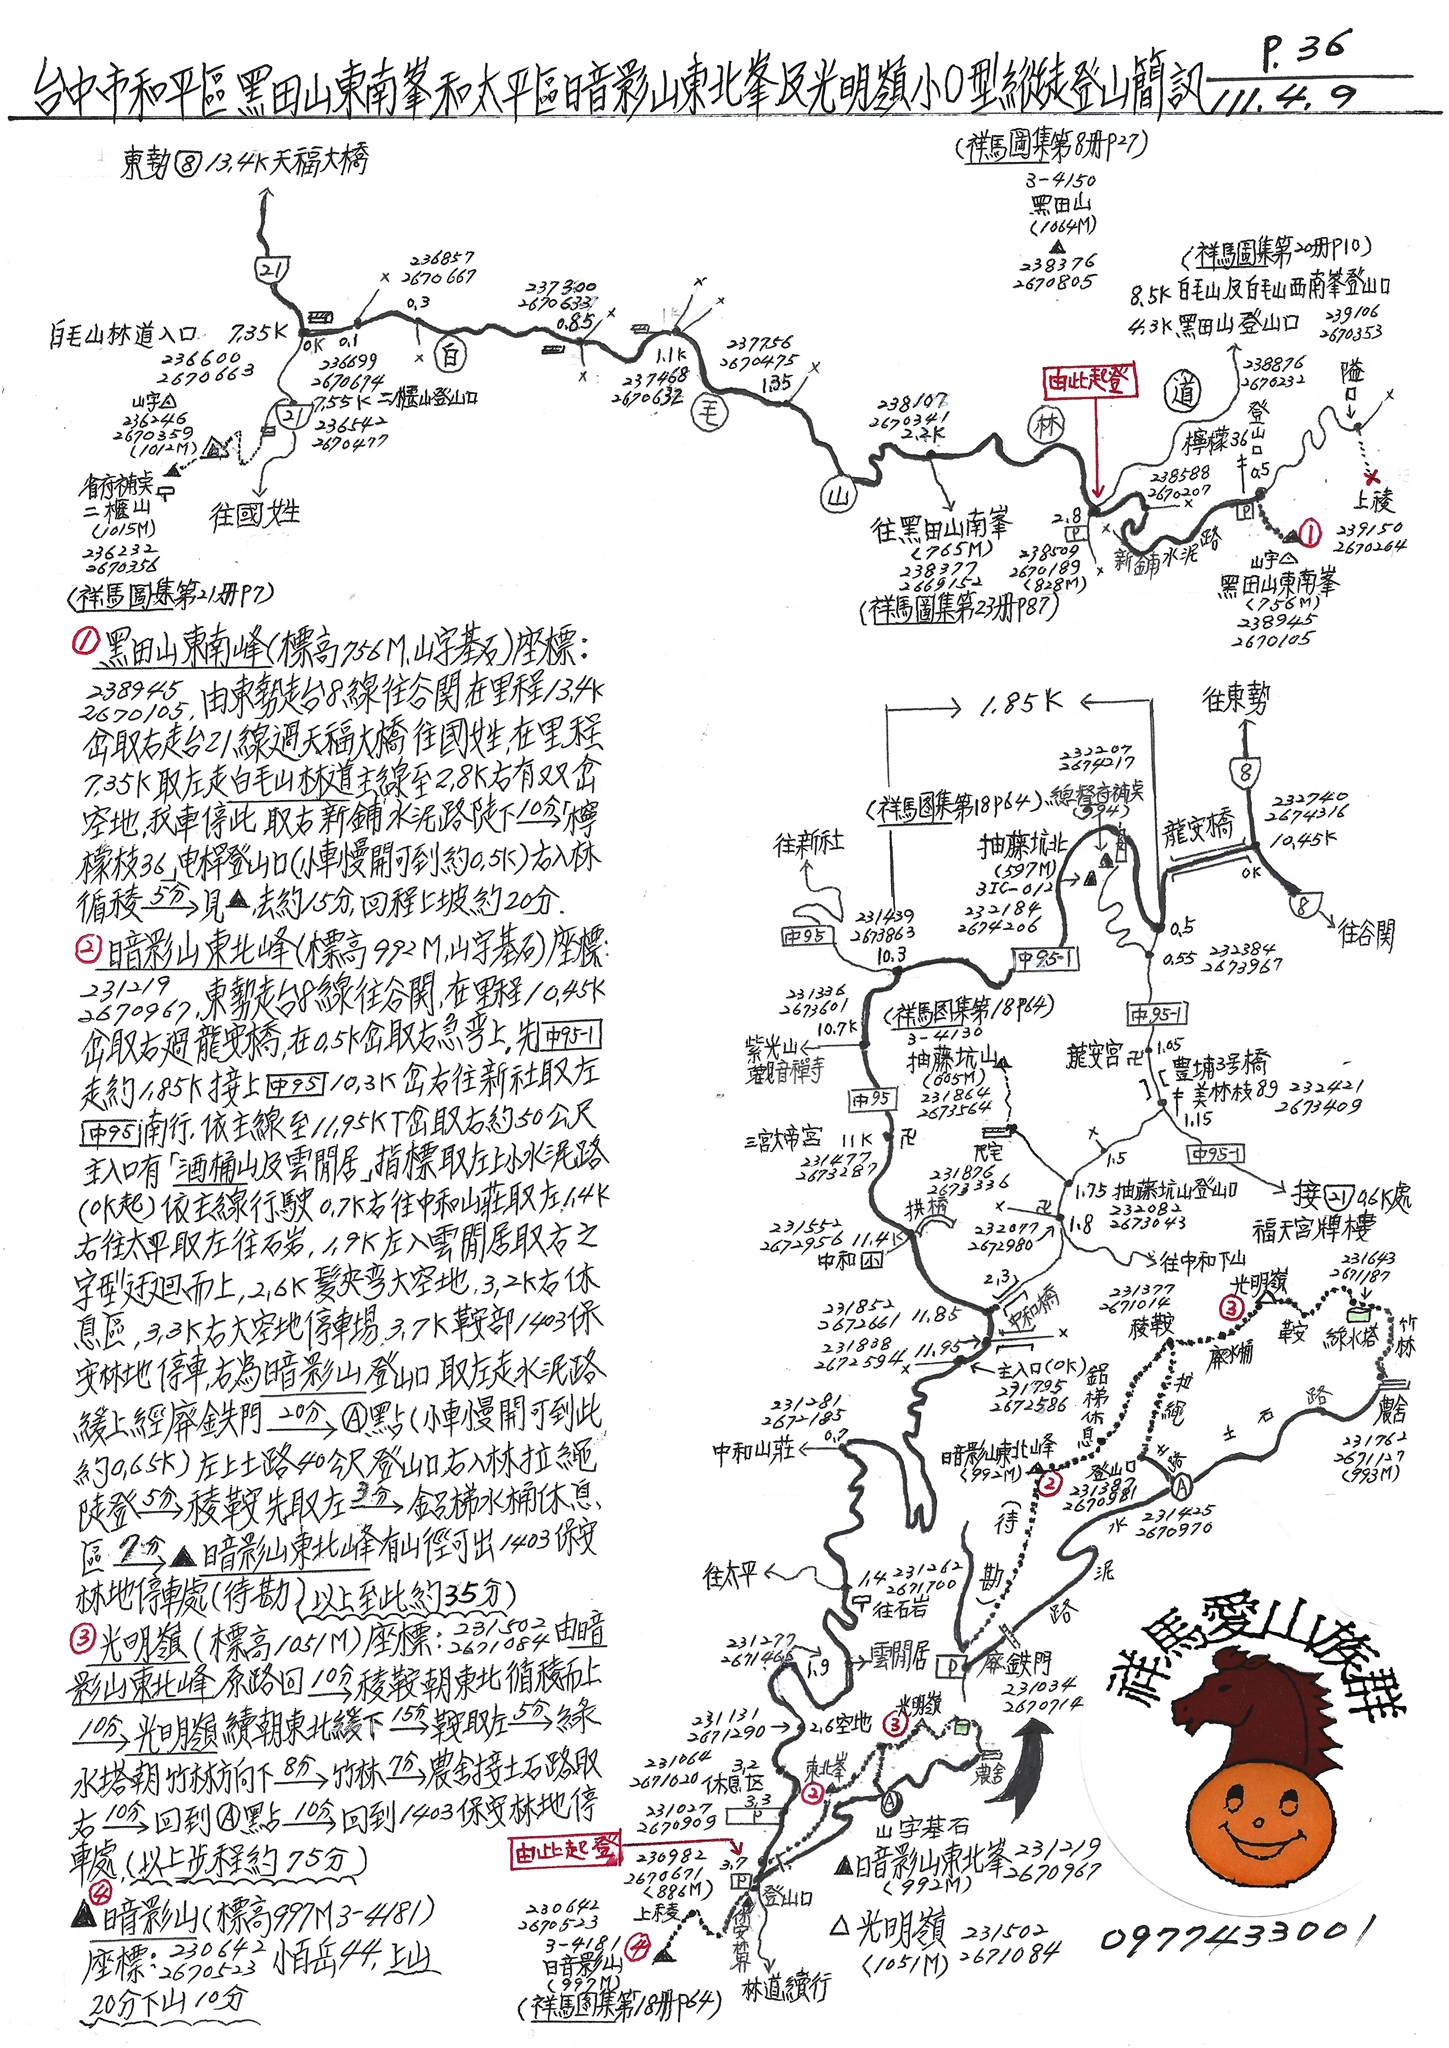 台中市和平區黑田山東南峯和太平區暗影山東北峯及光明嶺小O型縱走登山簡訊
P.36
111.4.9
東勢⑧13.4K天福大橋
(祥馬圖集第8册P27)
3-4150
黑田山
(1064M)
238376
2670805
(祥馬圖集第20册P10)
8.5K白毛山及白毛山西南峯登山口
4.3K黑田山登山口
239106
2670353
238876
2670232
21
白毛山林道入口 7.35K
236600
2670663
0K
0.1
0.3
236857
2670667
236699
2670674
237300
2670633
0.85
1.1K
237468
2670632
237756
2670475
1.35
白
毛
山
林
道
7.55K二櫃山登山口
21
236542
2670477
山字△
236246
2670359
(1012M)
省府補點
二櫃山
(1015M)
236232
2670356
(祥馬圖集第21册P7)
往國姓
238107
2670341
2.2K
往黑田山南峯
(765M)
238377
2669152
(祥馬圖集第23册P87)
由此起登
2.8
P
238509
2670189
(828M)
238588
2670207
新鋪水泥路
檸檬36
登山口
0.5
P
隘口
上稜
239150
2670264
①
山字△
黑田山東南峯
(756M)
238945
2670105
①黑田山東南峰(標高756M.山字基石)座標:
238945
2670105. 由東勢走台8線往谷關在里程13.4K
岔取右走台21線過天福大橋往國姓,在里程
7.35K取左走白毛山林道主線至2.8K右有双岔
空地,我車停此,取右新鋪水泥路陡下10分→「檸
檬枝36」电桿登山口(小車慢開可到約0.5K)右入林
循稜5分→見▲,去約15分,回程上坡約20分.
②暗影山東北峰(標高992M,山字基石)座標:
231219
2670967. 東勢走台8線往谷關,在里程10.45K
岔取右過龍安橋,在0.5K岔取右急弯上,先中95-1
走約1.85K接上中95 10.3K岔右往新社取左
中95南行.依主線至11.95K丁岔取右約50公尺
主入口有「酒桶山及雲閒居」指標取左上小水泥路
(0K起)依主線行駛0.7K右往中和山莊取左,1.4K
右往太平取左往石岩,1.9K左入雲閒居取右之
字型迂迴而上,2.6K髮夾弯大空地,3.2K右休
息區,3.3K右大空地停車場,3.7K鞍部1403保
安林地停車,右為暗影山登山口,取左走水泥路
緩上經廢鉄門20分→Ⓐ點(小車慢開可到此
約0.65K)左上土路40公尺登山口右入林拉繩
陡登5分→稜鞍先取左3分→鋁梯水桶休息
區7分→▲暗影山東北峰有山徑可出1403保安
林地停車處(待勘)(以上至此約35分)
③光明嶺(標高1051M)座標:231502
2671084由暗
影山東北峰原路回10分→稜鞍朝東北循稜而上
10分→光明嶺續朝東北緩下15分→鞍取左5分→綠
水塔朝竹林方向下8分→竹林7分→農舍接土石路取
右10分→回到Ⓐ點10分→回到1403保安林地停
車處,(以上步程約75分)
④
▲暗影山(標高997M3-4181)
座標:230642
2670523 小百岳44,上山
20分下山10分
1.85K
往東勢
8
232740
2674316
10.45K
龍安橋
0K
8
往谷關
232207
2674217
(祥馬图集第18P64)
總督府補點
(594)
抽藤坑北
(597M)
3IG-012
232184
2674206
0.5
0.55
232384
2673967
往新社
中95
231439
2673863
10.3
中95-1
中95-1
231336
2673601
10.7K
紫光山
觀音禪寺
(祥馬图集第18P64)
3-4130
抽藤坑山
(605M)
231864
2673564
龍安宮卍
1.05
豊埔3号橋
美林枝89
232421
2673409
1.15
中95-1
中95
三宮大帝宮
11K
卍
231477
2673287
民宅
1.5
1.75抽藤坑山登山口
232082
2673043
接21 0.6K處
福天宮牌樓
231876
2673336
拱橋
231552
2672956
11.4K
中和小
232077
2672980
卍
1.8
往中和下山
2.3
中和橋
231852
2672661
11.85
231838
2672594
11.95
主入口(0K)
231795
2672586
231377
2671014
稜鞍
光明嶺
③
鞍
231643
2671187
綠水塔
竹林
廢水桶
鋁梯休息
拉繩
農舍
231762
2671127
(993M)
土石路
231281
2672185
0.7
中和山莊
暗影山東北峰
(992M)
②
登山口
231387
2670981
土路
Ⓐ
231425
2670970
水泥路
(待勘)
往太平
1.4
231262
2671700
往石岩
231277
2671465
1.9
雲閒居
P
廢鉄門
231034
2670714
231131
2671290
2.6空地
光明嶺
③
231064
2671020
3.2
休息区
東北峯
②
農舍
Ⓐ
231027
2670909
3.3
P
由此起登
230982
2670671
(886M)
3.7
P
登山口
上稜
保安林界
林道續行
230642
2670523
3-4181
暗影山
(997M)
④
(祥馬図集第18册P64)
山字基石
▲暗影山東北峯
(992M)
231219
2670967
△光明嶺
(1051M)
231502
2671084
祥馬愛山族群
0977433001